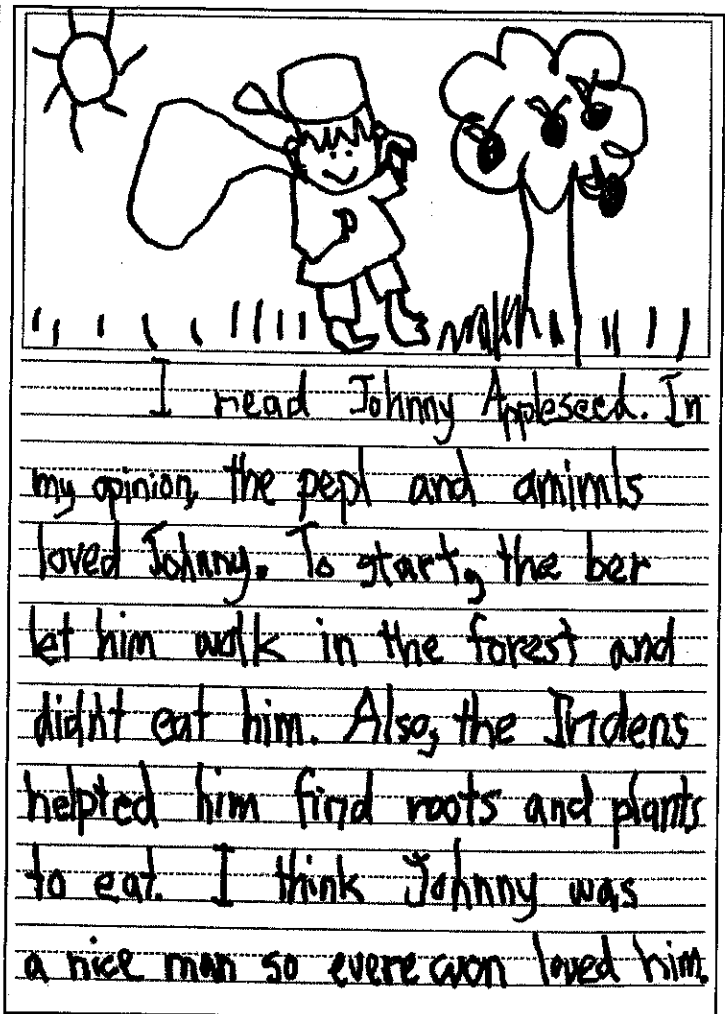 I read Johnny Appleseed. In
my opinion, the pepl and amimls
loved Johnny. To start, the ber
let him walk in the forest and
didnt eat him. Also, the Indens
helpted him find roots and plants
to eat. I think Johnny was
a nice man so evere won loved him.